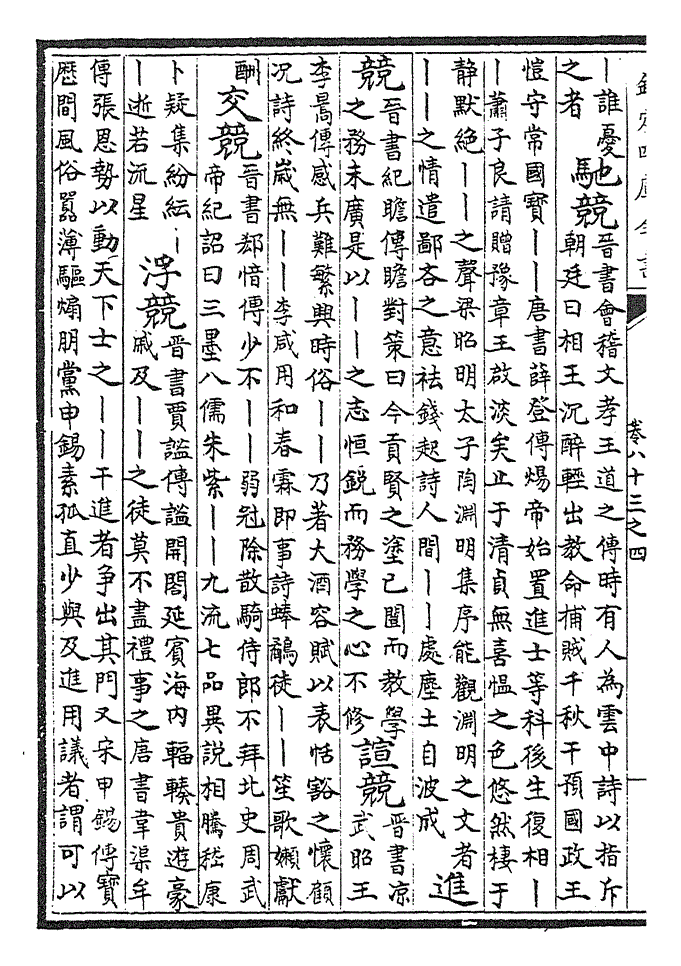 欽定四庫全書
卷八十三之四
｜誰憂
之者
馳競
晉書會稽文孝王道之傳時有人為雲中詩以指斥
朝廷曰相王沉醉輕出教命捕賊千秋干預國政王
愷守常國寶｜｜唐書薛登傳煬帝始置進士等科後生復相｜
｜蕭子良請贈豫章王啟淡矣止于清貞無喜慍之色悠然棲于
靜默絕｜｜之聲梁昭明太子陶淵明集序能觀淵明之文者
｜｜之情遣鄙吝之意祛錢起詩人間｜｜處塵土自波成
進
競
晉書紀瞻傳瞻對策曰今貢賢之塗已闓而教學
之務未廣是以｜｜之志恒銳而務學之心不修
諠競
晉書凉
武昭王
李暠傳感兵難繁興時俗｜｜乃著大酒容賦以表恬豁之懷顧
況詩終歲無｜｜李咸用和春霖即事詩蟀鶺徒｜｜笙歌嬾獻
酬
交競
晉書郄愔傳少不｜｜弱冠除散騎侍郎不拜北史周武
帝紀詔曰三墨八儒朱紫｜｜九流七品異說相騰嵇康
卜疑集紛紜｜
｜逝若流星
浮競
晉書賈謐傳謐開閣延賓海内輻輳貴遊豪
戚及｜｜之徒莫不盡禮事之唐書韋渠牟
傳張恩勢以動天下士之｜｜干進者争出其門又宋申錫傳寶
厯間風俗嚚薄驅煽朋黨申錫素孤直少與及進用議者謂可以